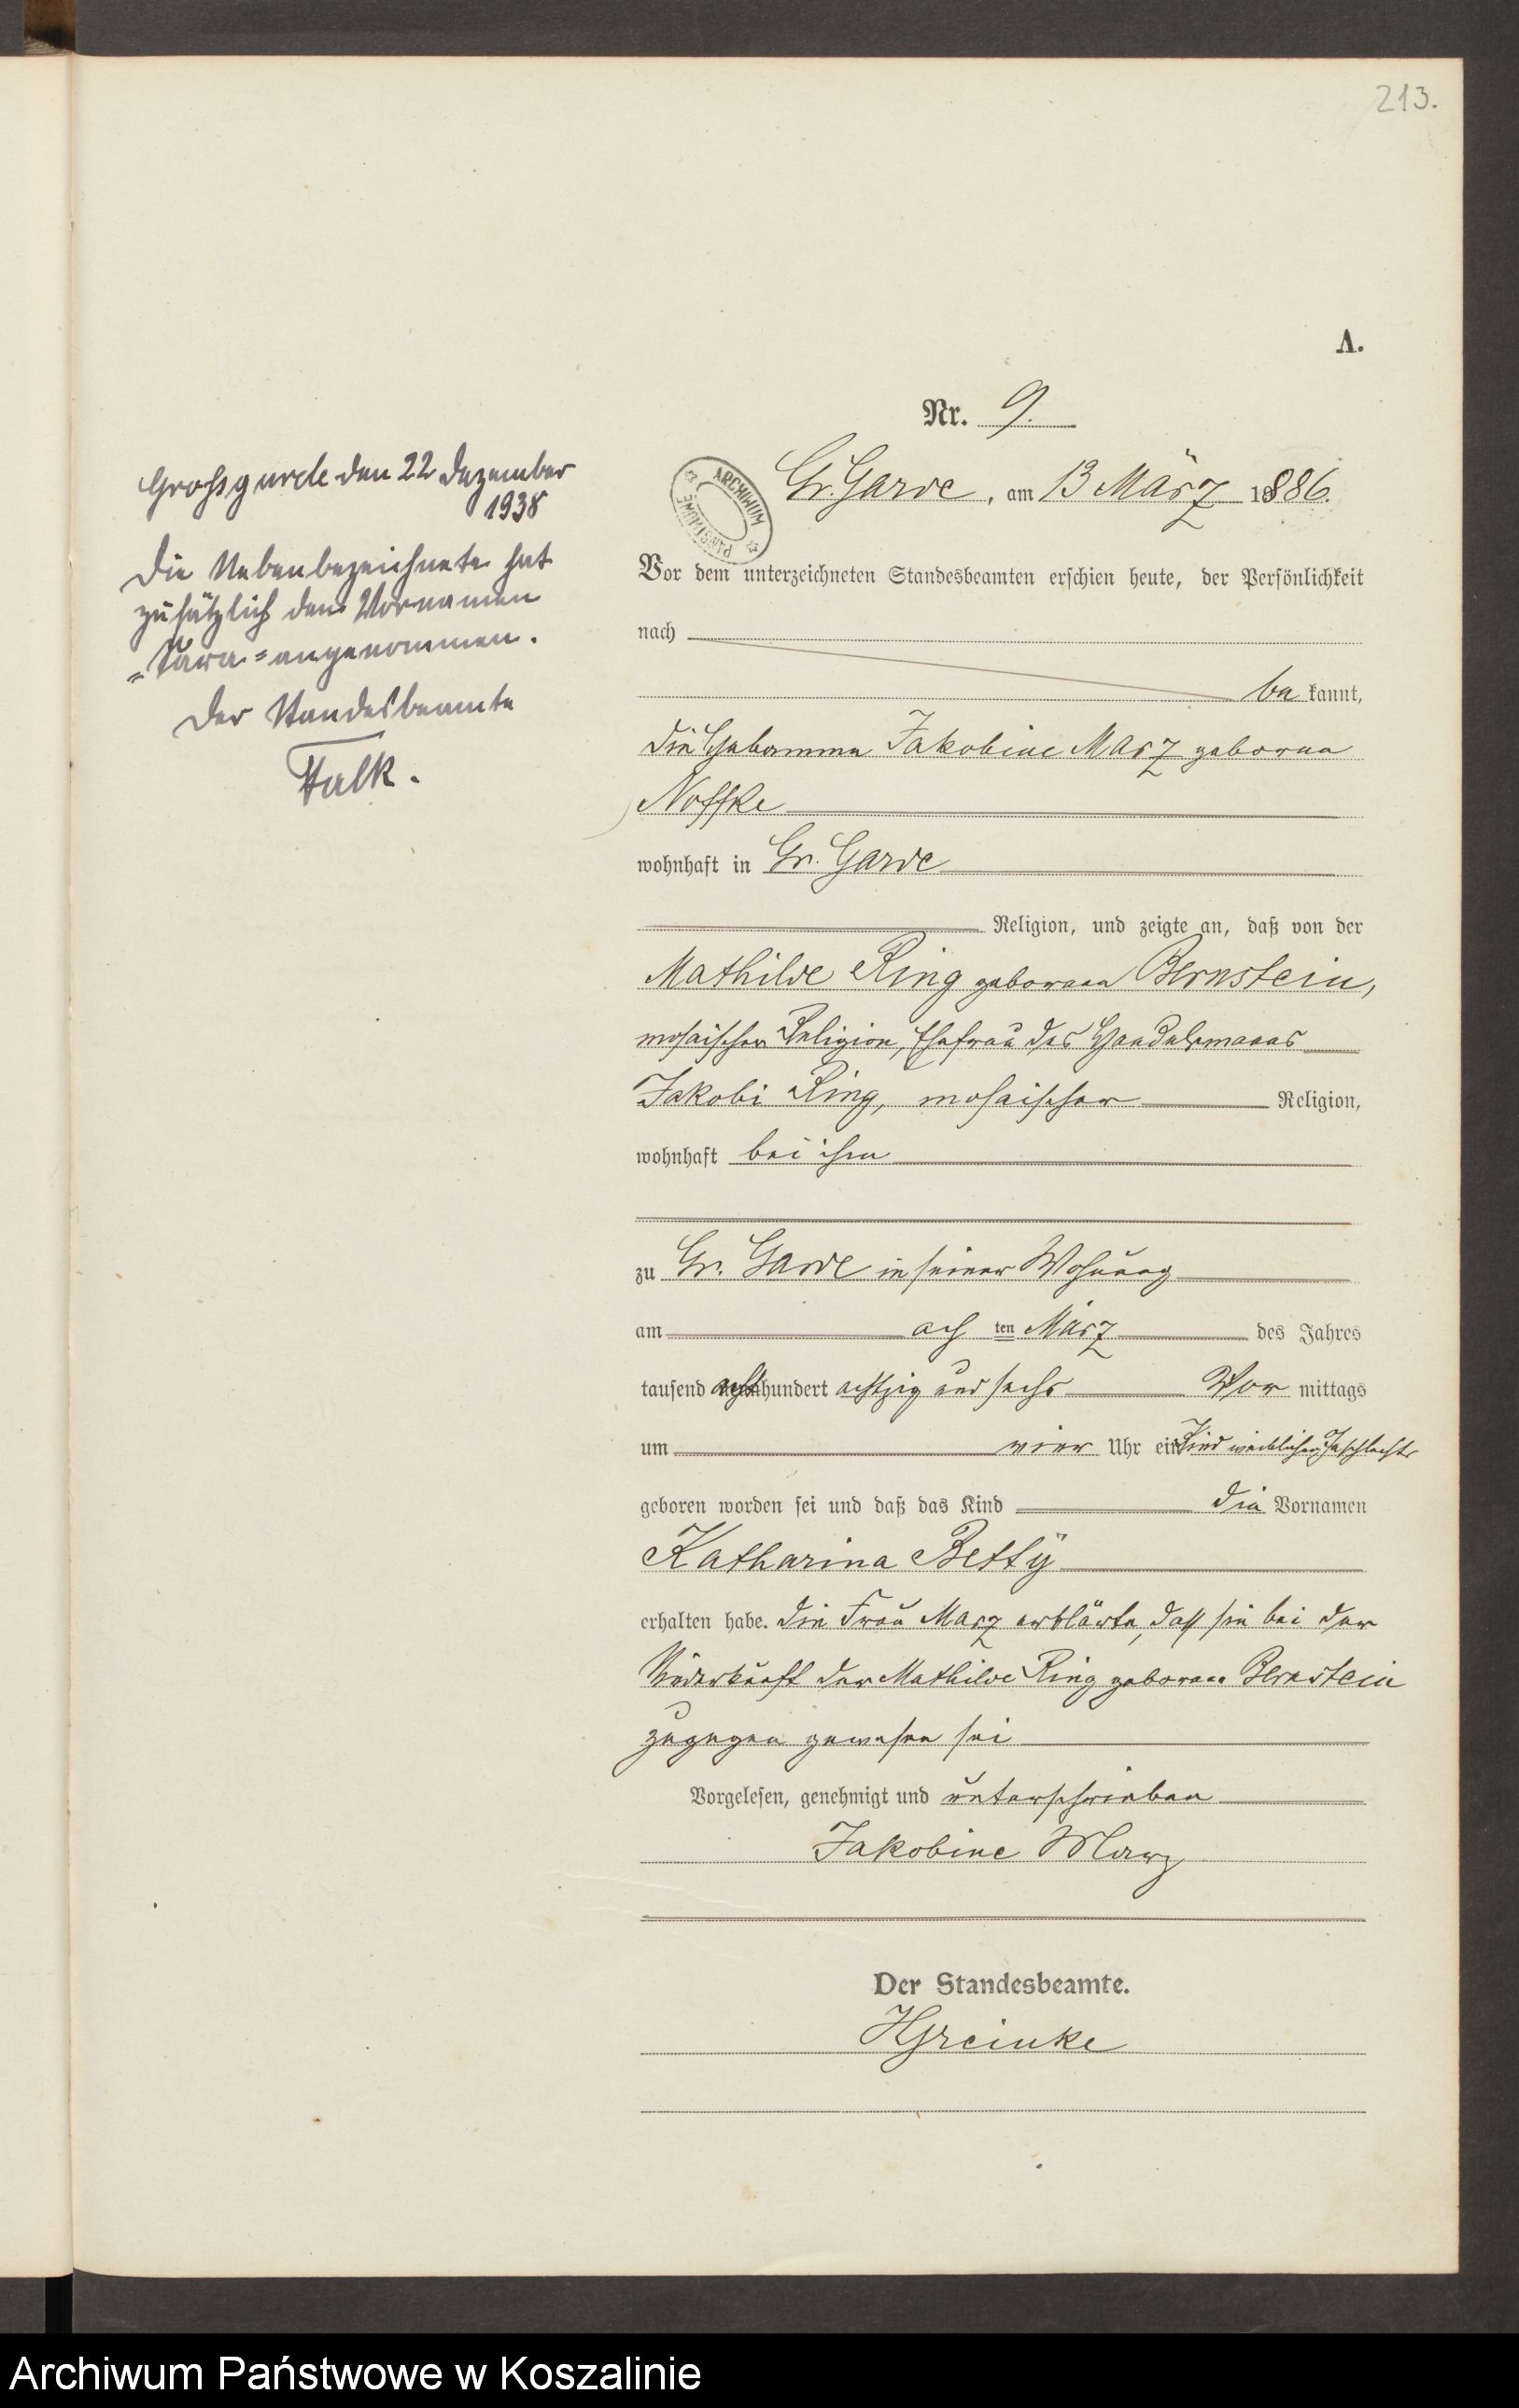 213.
A.
Nr. 9.
Gr. Garde, am 13 März 1886.
Vor dem unterzeichneten Standesbeamten erschien heute, der Persönlichkeit
nach
be kannt,
die Hebamme Jakobine Marz geborene
Noffke
wohnhaft in Gr. Garde
Religion, und zeigte an, daß von der
Mathilde Ring geborenen Bernstein,
mosaischer Religion, Ehefrau des Handelsmanns
Jakobi Ring, mosaischer Religion,
wohnhaft bei ihm
zu Gr. Garde in seiner Wohnung
am ach ten März des Jahres
tausend acht hundert achtzig und sechs Vor mittags
um vier Uhr ein Kind weiblichen Geschlechts
geboren worden sei und daß das Kind die Vornamen
Katharina Betty
erhalten habe. Die Frau Marz erklärte, daß sie bei der
Niederkunft der Mathilde Ring geborene Bernstein
zugegen gewesen sei
Vorgelesen, genehmigt und unterschrieben
Jakobine Marz
Der Standesbeamte.
Großgarde den 22 Dezember
1938
Die Nebenbezeichnete hat
zusätzlich den Vornamen
"Sara" angenommen.
Der Standesbeamte
ARCHIWUM
PAŃSTWOWE
Archiwum Państwowe w Koszalinie